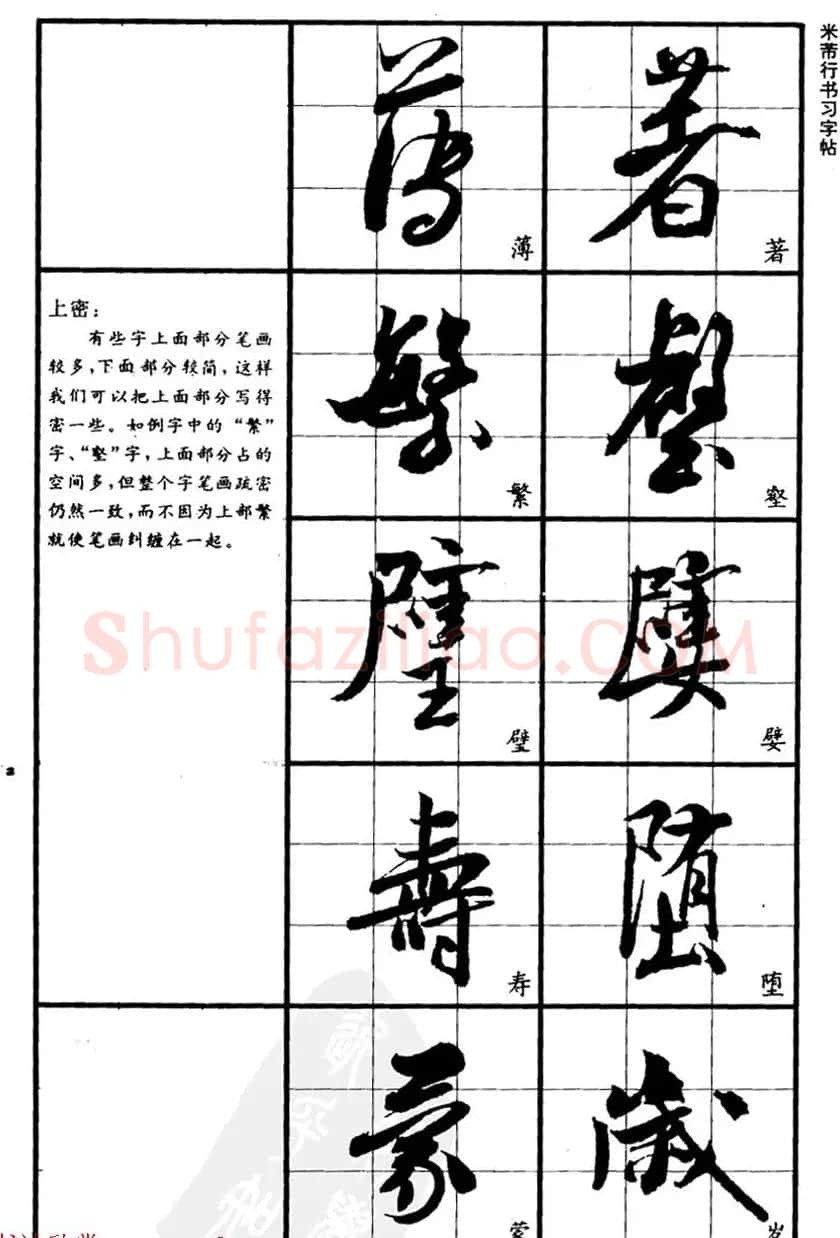 米芾行书习字帖
著
薄
上密：
有些字上面部分笔画
较多，下面部分较简，这样
我们可以把上面部分写得
密一些。如例字中的“繁”
字、“壑”字，上面部分占的
空间多，但整个字笔画疏密
仍然一致，而不因为上部繁
就使笔画纠缠在一起。
繁
壑
璧
嬖
寿
堕
蒙
岁
Shufaziliao.COM